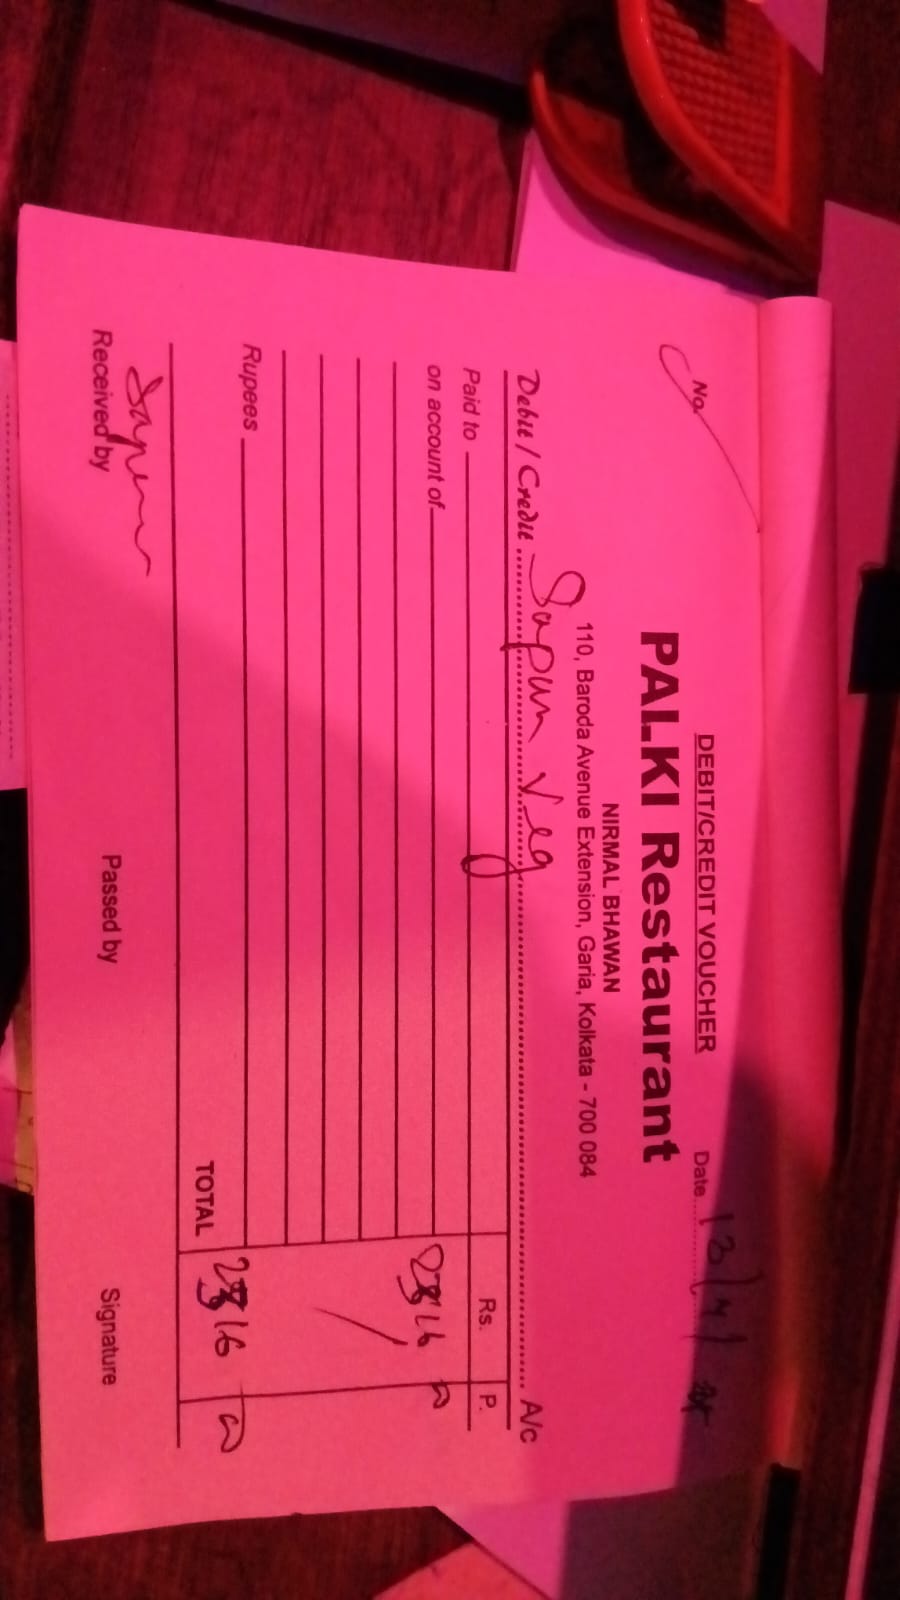 DEBIT/CREDIT VOUCHER
No. Date 13/4/
PALKI Restaurant
NIRMAL BHAWAN
110, Baroda Avenue Extension, Garia, Kolkata - 700 084
Debit / Credit Sapan Veg A/c
Paid to Rs. P.
on account of
Rupees
TOTAL
Sapan
Received by Passed by Signature